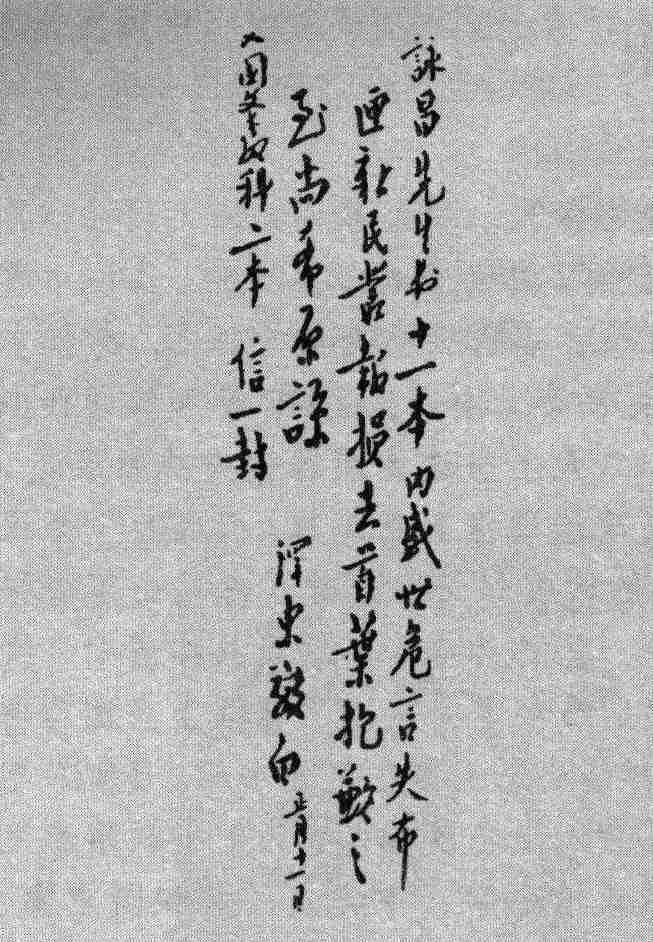 詠昌先生书十一本内盛世危言失布
匣新民叢報損去首葉抱歉之
至尚希原諒
澤東敬白
正月十一日
又国文教科二本 信一封